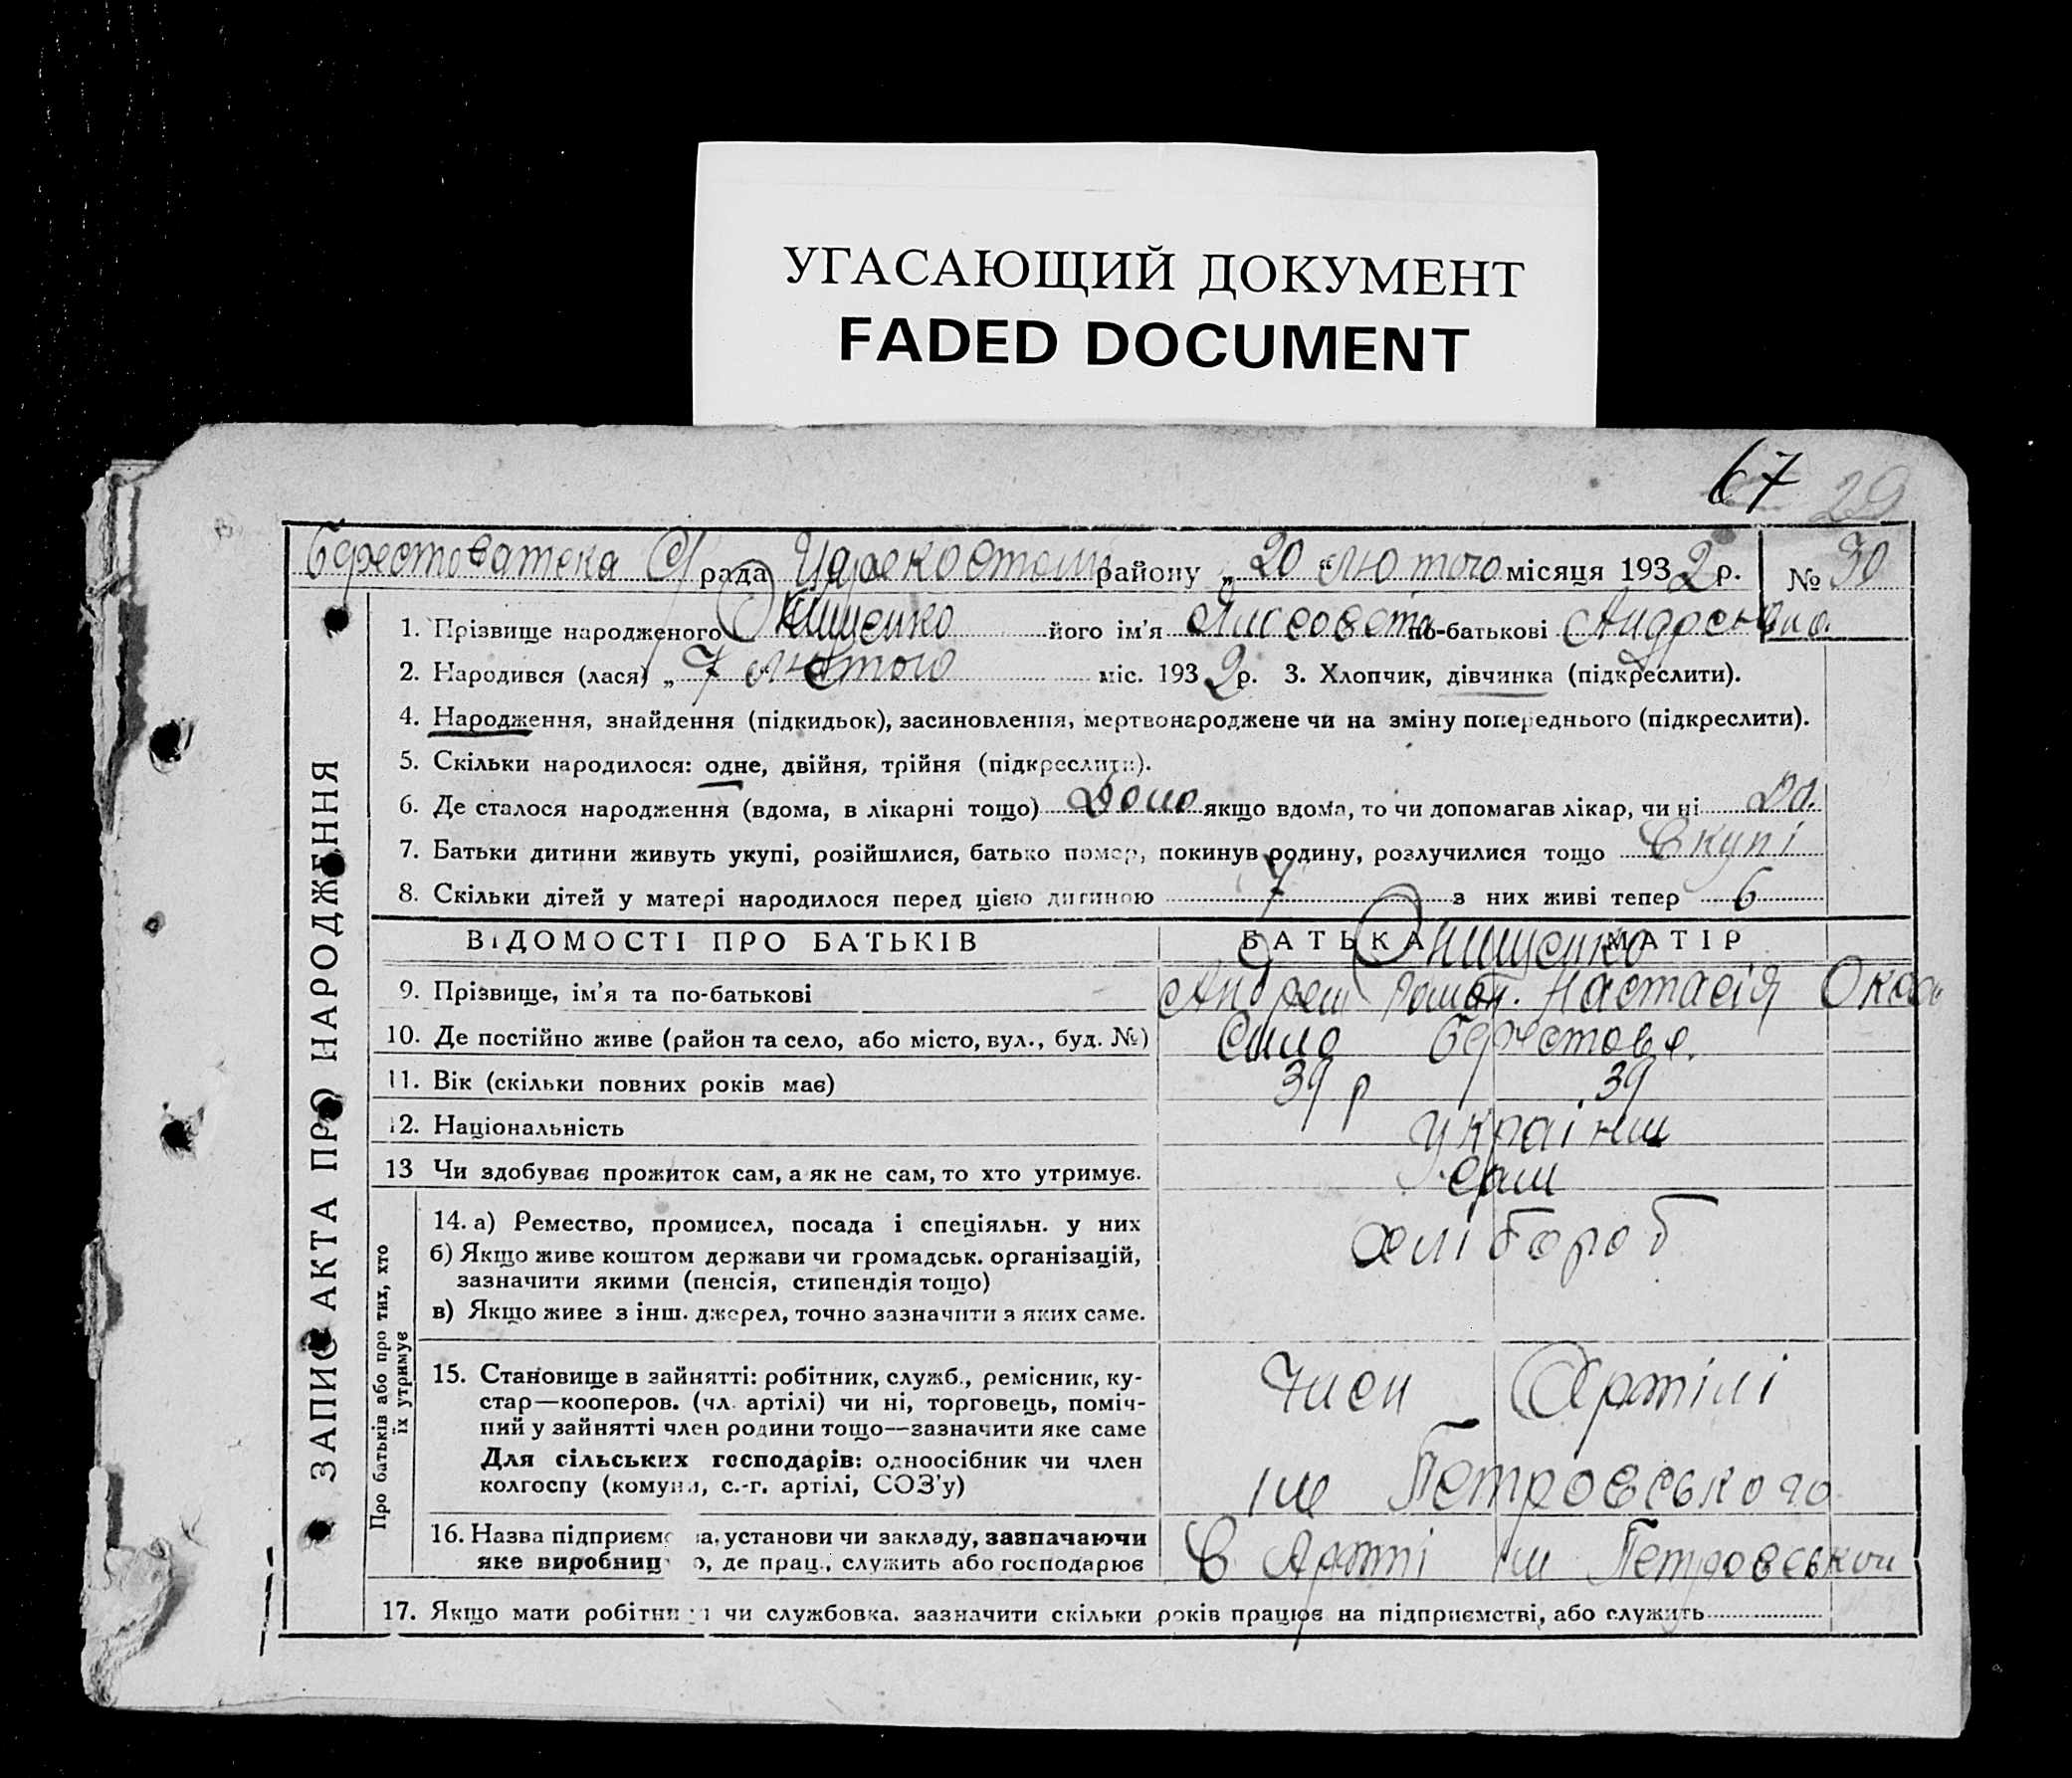 УГАСАЮЩИЙ ДОКУМЕНТ
FADED DOCUMENT
67 29
Берестоватська С/ рада района „20“ лютого місяця 1932 р. № 30
ЗАПИС АКТА ПРО НАРОДЖЕННЯ
1. Прізвище народженого Онищенко його ім’я по-батькові
2. Народився (лася) „ 7 лютого міс. 1932 р. 3. Хлопчик, дівчинка (підкреслити).
4. Народження, знайдення (підкидьок), засиновлення, мертвонароджене чи на зміну попереднього (підкреслити).
5. Скільки народилося: одне, двійня, трійня (підкреслити).
6. Де сталося народження (вдома, в лікарні тощо) якщо вдома, то чи допомагав лікар, чи ні
7. Батьки дитини живуть укупі, розійшлися, батько помер, покинув родину, розлучилися тощо вкупі
8. Скільки дітей у матері народилося перед цією дитиною 7 з них живі тепер 6
ВІДОМОСТІ ПРО БАТЬКІВ БАТЬКА МАТІР
Онищенко
9. Прізвище, ім’я та по-батькові Андрей Роман. Настасія
10. Де постійно живе (район та село, або місто, вул., буд. №) Село Берестове.
11. Вік (скільки повних років має) 39 р 39
12. Національність
13 Чи здобуває прожиток сам, а як не сам, то хто утримує.
Про батьків або про тих, хто їх утримує
14. а) Ремество, промисел, посада і спеціяльн. у них хлібороб
б) Якщо живе коштом держави чи громадськ. організацій,
зазначити якими (пенсія, стипендія тощо)
в) Якщо живе з інш. джерел, точно зазначити з яких саме.
15. Становище в зайнятті: робітник, служб., ремісник, ку- Член Артілі
стар—кооперов. (чл. артілі) чи ні, торговець, поміч-
ний у зайнятті член родини тощо—зазначити яке саме
Для сільських господарів: одноосібник чи член ім Петровського
колгоспу (комуни, с.-г. артілі, СОЗ’у)
16. Назва підприємс ва, установи чи закладу, зазначаючи В ім
яке виробниц о, де прац., служить або господарює
17. Якщо мати робітниця чи службовка, зазначити скільки років працює на підприємстві, або служить